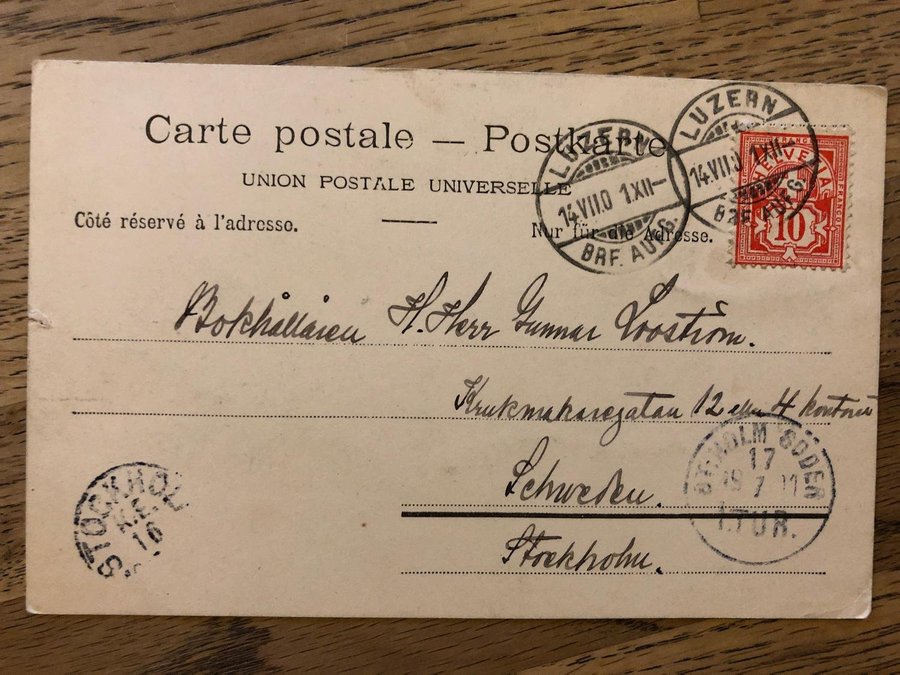 Carte postale — Postkarte
UNION POSTALE UNIVERSELLE
Côté réservé à l'adresse.
Nur für die Adresse.
LUZERN
14.VII.0 1.XII–
BRF. AUFG.
LUZERN
14.VII.0 1.XII–
BRF. AUFG.
HELVETIA
10
Bokhållaren H. Herr Gunnar Looström.
Krukmakaregatan 12 eller 4 kontoret
Schweden.
Stockholm.
STOCKHOL
K.E.
16
STHOLM SÖDER
17
7
1.TUR.